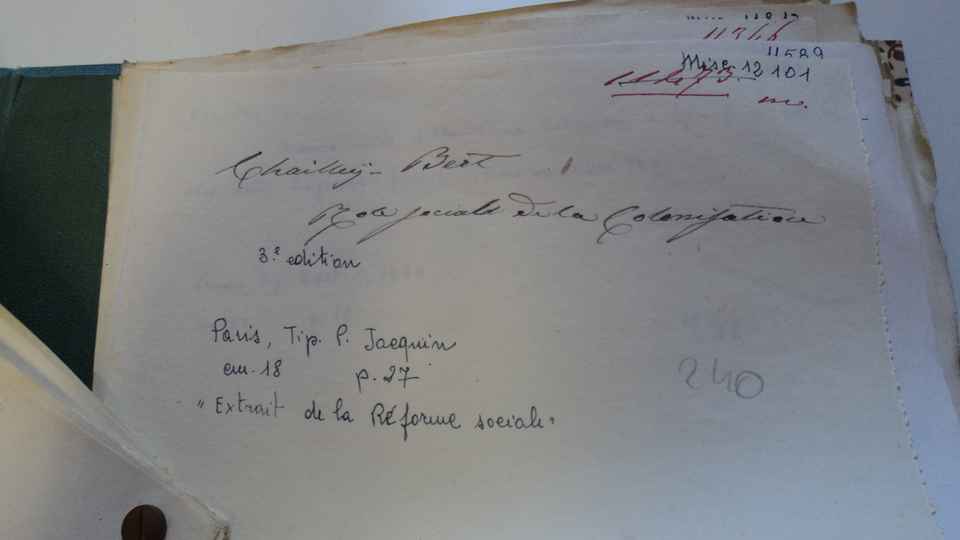 11529
Misc. 12 101
Chailley-Bert
Role sociale de la Colonisation
3ª edition
Paris, Tip. P. Jacquin
cm. 18 p. 27
"Extrait de la Réforme sociale"
240